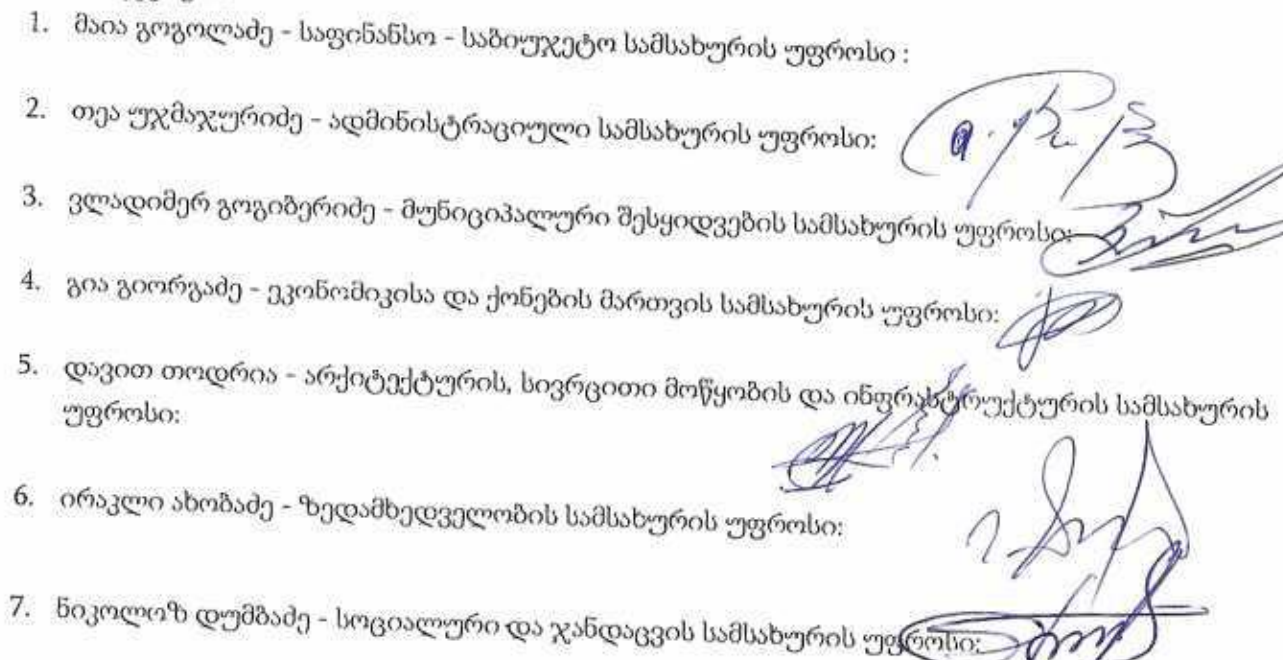 1. მაია გოგოლაძე - საფინანსო - საბიუჯეტო სამსახურის უფროსი :
2. თეა უჯმაჯურიძე - ადმინისტრაციული სამსახურის უფროსი:
3. ვლადიმერ გოგიბერიძე - მუნიციპალური შესყიდვების სამსახურის უფროსი:
4. გია გიორგაძე - ეკონომიკისა და ქონების მართვის სამსახურის უფროსი:
5. დავით თოდრია - არქიტექტურის, სივრცითი მოწყობის და ინფრასტრუქტურის სამსახურის
უფროსი:
6. ირაკლი ახობაძე - ზედამხედველობის სამსახურის უფროსი:
7. ნიკოლოზ დუმბაძე - სოციალური და ჯანდაცვის სამსახურის უფროსი: